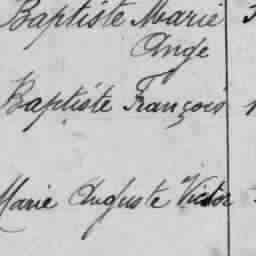 Baptiste Marie
Ange
Baptiste François
Marie Auguste Victor